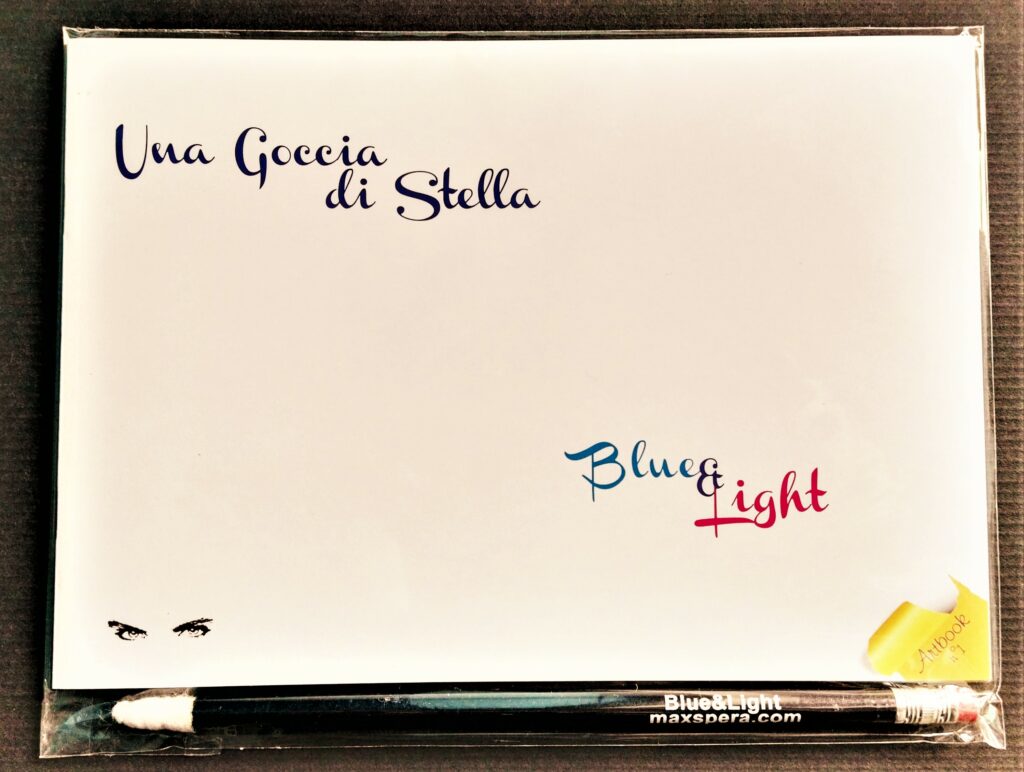 Una Goccia
di Stella
Blue&
Light
Artbook
n°1
Blue&Light
maxspera.com